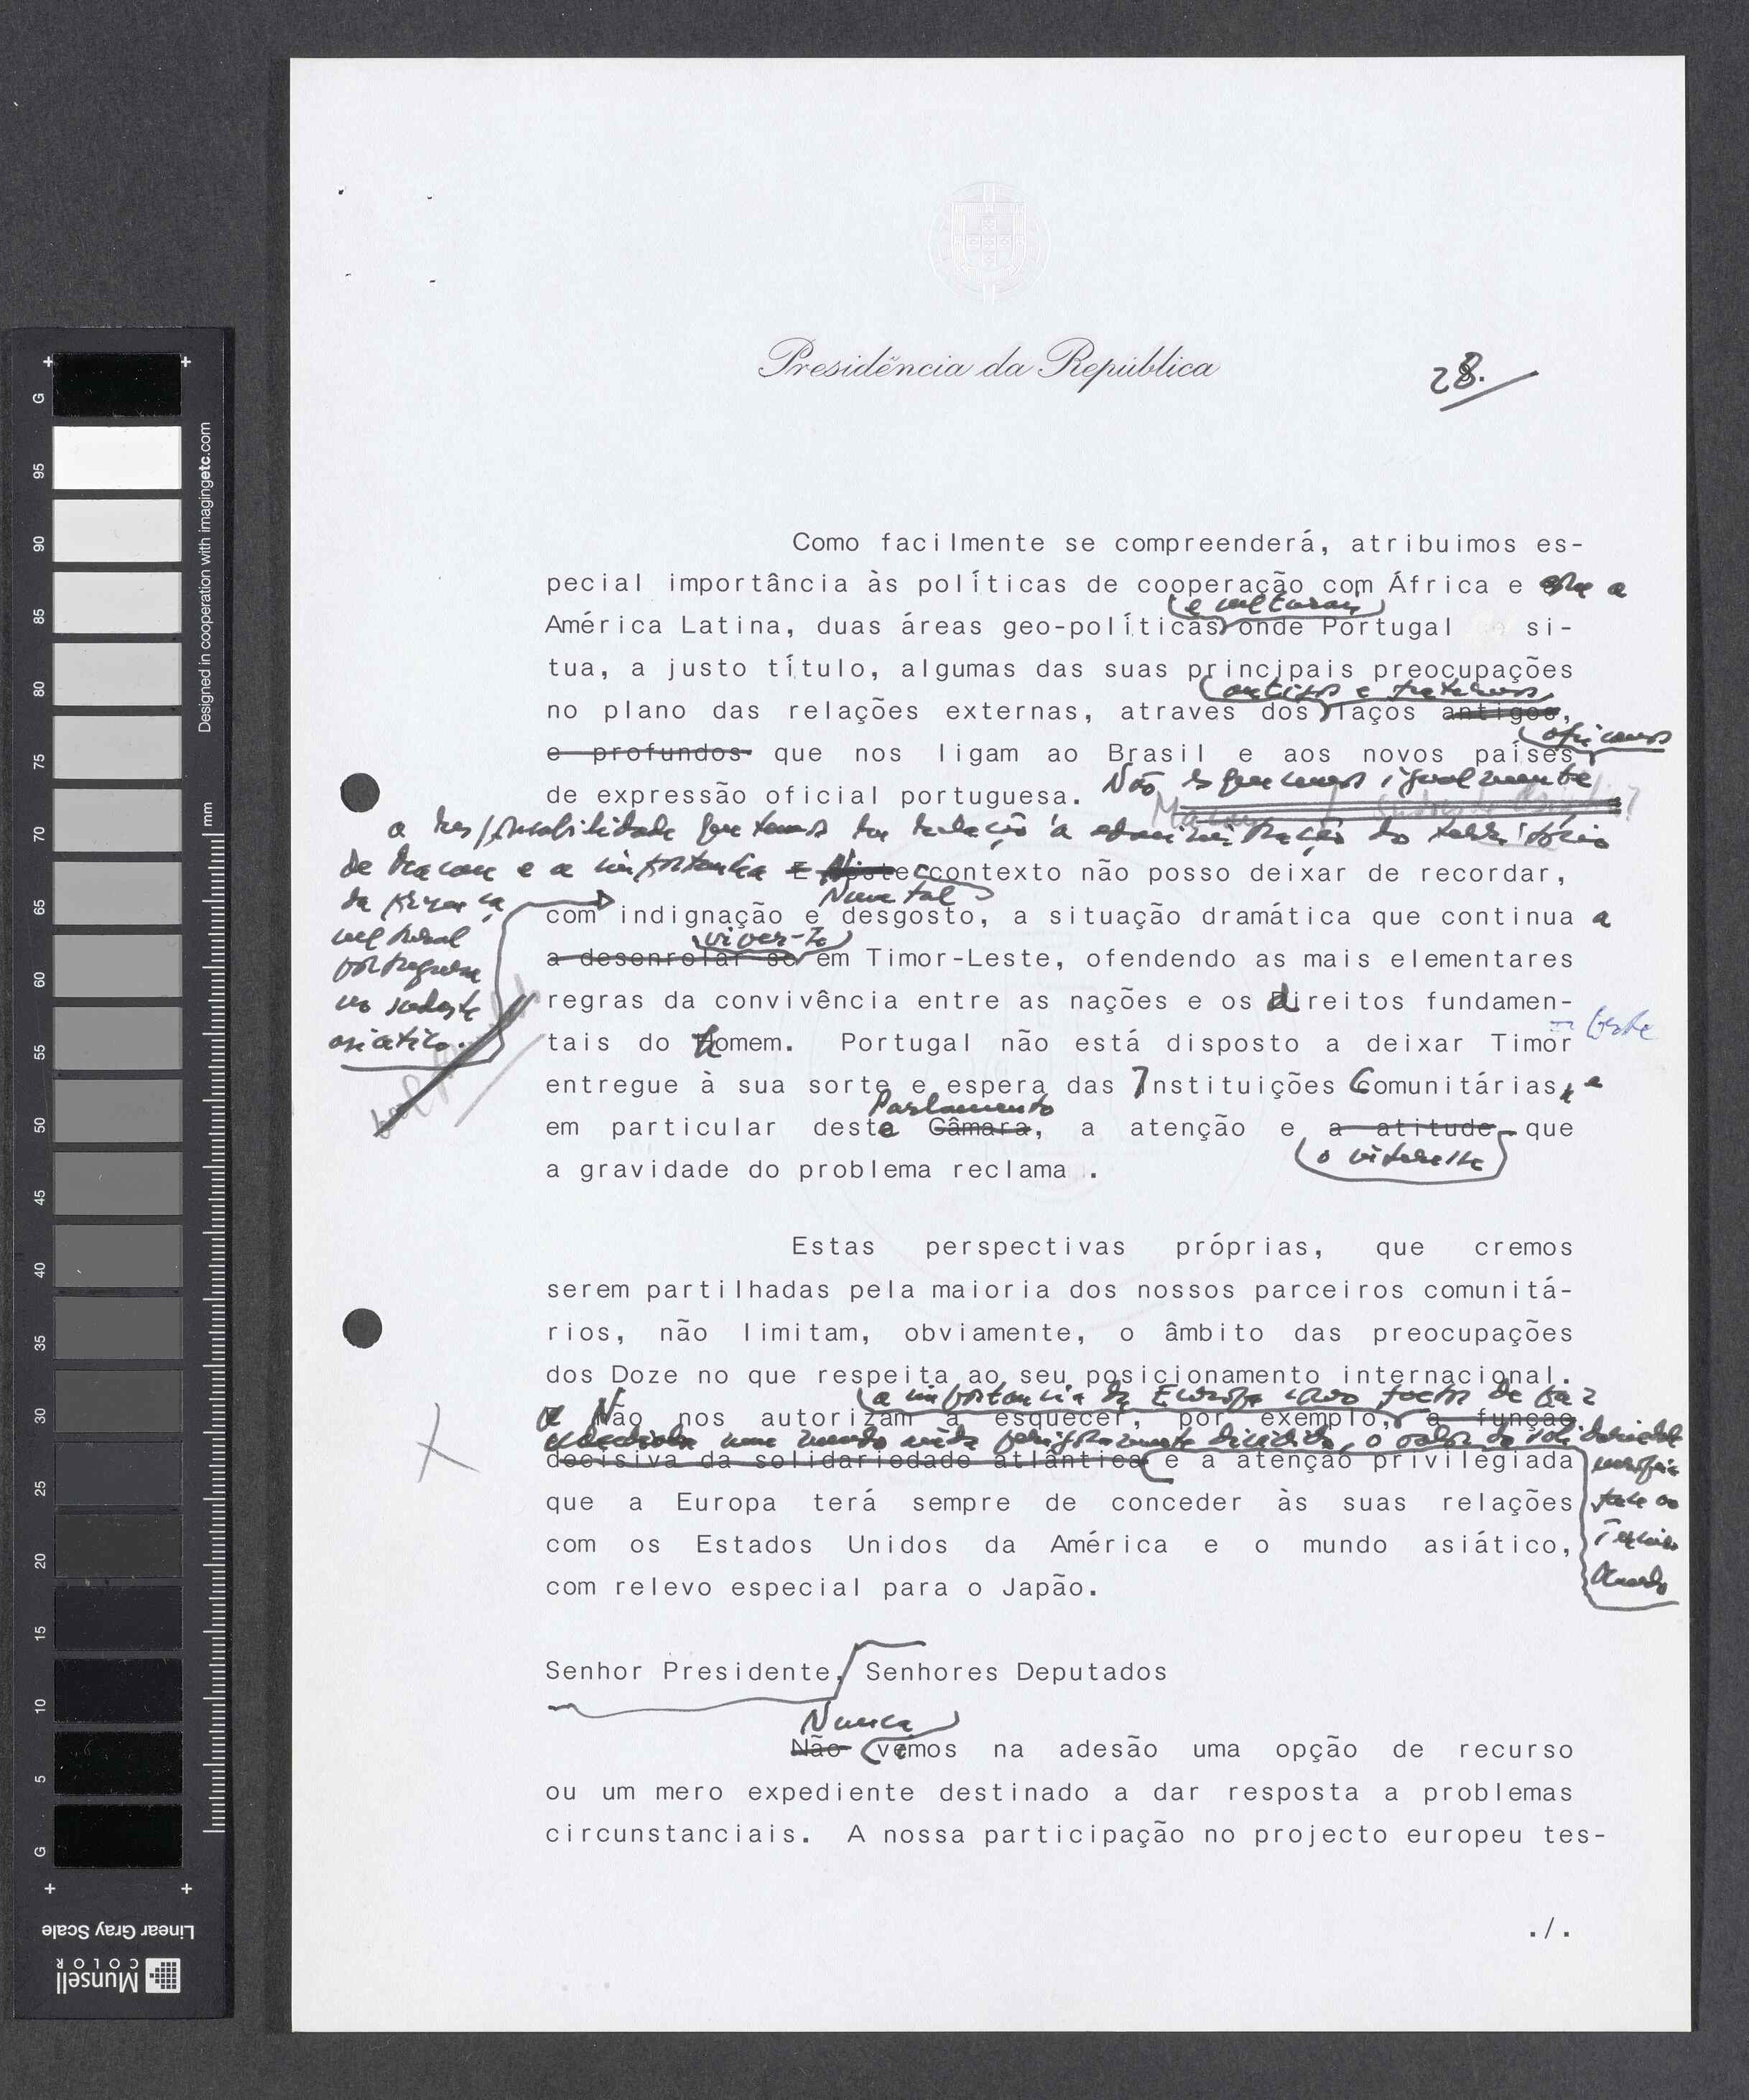 Presidência da República
28.
Como facilmente se compreenderá, atribuimos es-
pecial importância às políticas de cooperação com África e a
e culturais
América Latina, duas áreas geo-políticas onde Portugal si-
tua, a justo título, algumas das suas principais preocupações
antigos e fraternos
no plano das relações externas, através dos laços antigos,
africanos
e profundos que nos ligam ao Brasil e aos novos países
Não esquecemos igualmente
de expressão oficial portuguesa.
Macau
a responsabilidade que temos em relação à administração do território
de Macau e a importância E Neste contexto não posso deixar de recordar,
da presença
Num tal
com indignação e desgosto, a situação dramática que continua a
cultural
viver-se
portuguesa
a desenrolar se em Timor-Leste, ofendendo as mais elementares
no sudeste
regras da convivência entre as nações e os direitos fundamen-
asiático.
- Leste
tais do homem. Portugal não está disposto a deixar Timor
entregue à sua sorte e espera das Instituições Comunitárias, e
Parlamento
em particular deste Câmara, a atenção e a atitude que
o interesse
a gravidade do problema reclama .
Estas perspectivas próprias, que cremos
serem partilhadas pela maioria dos nossos parceiros comunitá-
rios, não limitam, obviamente, o âmbito das preocupações
dos Doze no que respeita ao seu posicionamento internacional.
a importância da Europa como factor de paz
Não nos autorizam a esquecer, por exemplo, a função
num mundo ainda perigosamente dividido, o valor da solidariedade
decisiva da solidariedade atlântica e a atenção privilegiada
europeia
que a Europa terá sempre de conceder às suas relações
face ao
com os Estados Unidos da América e o mundo asiático,
Terceiro
com relevo especial para o Japão.
Mundo
Senhor Presidente, Senhores Deputados
Nunca
Não vemos na adesão uma opção de recurso
ou um mero expediente destinado a dar resposta a problemas
circunstanciais. A nossa participação no projecto europeu tes-
./.
G
95
90
85
80
75
70
65
60
55
50
45
40
35
30
25
20
15
10
5
G
mm
Designed in cooperation with imagingetc.com
Linear Gray Scale
Munsell
COLOR